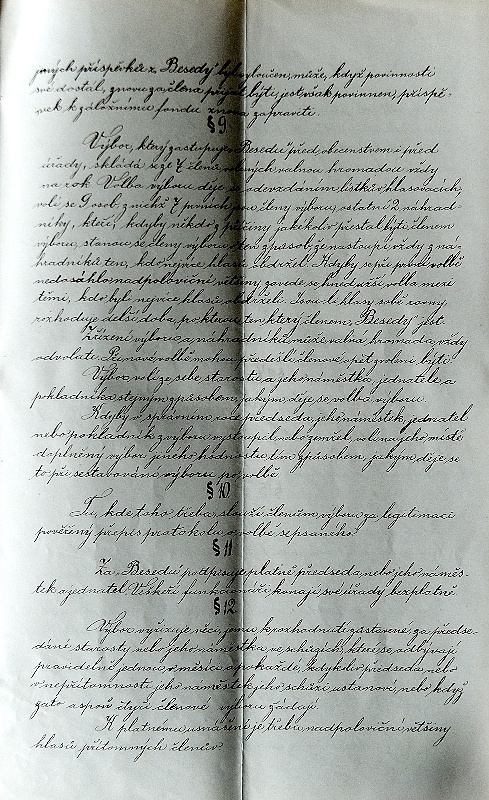 jiných příspěvků z "Besedy" byl vyloučen, může, když povinnosti
své dostál, znovu za člena přijat býti, jest však povinnen, příspě-
vek k záložnímu fondu znova zapraviti.
§ 9.
Výbor, který zastupuje "Besedu" před obecenstvem i před
úřady, skládá se ze 7 členů, volených valnou hromadou vždy
na rok. Volba výboru děje se odevzdáním lístků hlasovacích,
volí se 9 osob, z nichž 7 prvních jsou členy výboru, ostatní 2 náhrad-
níky, kteří, kdyby někdo z příčiny jakékoliv přestal býti členem
výboru, stanou se členy výboru a ten způsob, že nastoupí vždy z ná-
hradníků ten, kdo nejvíce hlasů obdržel. Kdyby se při první volbě
nedosáhlo nadpoloviční většiny, zavede se hned užší volba mezi
těmi, kdo byli nejvíce hlasů obdrželi. Jsou-li hlasy sobě rovny,
rozhoduje delší doba, po kterou ten který členem "Besedy" jest.
Zřízení výboru a náhradníků může valná hromada vždy
odvolati. Při nové volbě mohou předešlí členové opět zvoleni býti.
Výbor volí ze sebe starostu a jeho náměstka, jednatele a
pokladníka stejným způsobem, jakým děje se volba výboru.
Kdyby v správním roce předseda, jeho náměstek, jednatel
nebo pokladník z výboru vystoupil nebo zemřel, volí na jeho místě
doplněný výbor jiného hodnostu tím způsobem, jakým děje se
to při sestavování výboru po volbě.
§ 10.
Tu, kde toho třeba, slouží členům výboru za legitimaci
pověřený přepis protokolu o volbě sepsaného.
§ 11.
Za "Besedu" podpisuje platně předseda nebo jeho náměs-
tek a jednatel. Veškeří funkcionáři konají své úřady bezplatně.
§ 12.
Výbor vyřizuje věci, jemu k rozhodnutí zůstavené za předse-
dání starosty nebo jeho náměstka ve schůzích, které se odbývají
pravidelně jednou v měsíci a pokaždé, kdykoliv předseda nebo
v nepřítomnosti jeho náměstek jeho schůzi ustanoví, nebo když
za to aspoň čtyři členové výboru žádají.
K platnému usnášení je třeba nadpoloviční většiny
hlasů přítomných členův.